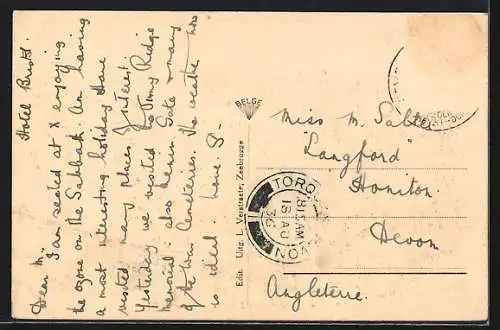 Hotel Bristol.
Dear M.
I am seated at X enjoying
the ozone on the Sabbath. Am having
a most interesting holiday. Have
visited many places of interest.
Yesterday we visited Vimy Ridge
Memorial: also Menin Gate & many
of the War Cemeteries. The weather here
is ideal. Love. S-
BELGE
Edit. Uitg. L. Verstraete, Zeebrugge
TORQ DEVON
815 AM
18 AU
36
Miss M. Salter
"Langford"
Honiton
Devon
Angleterre.